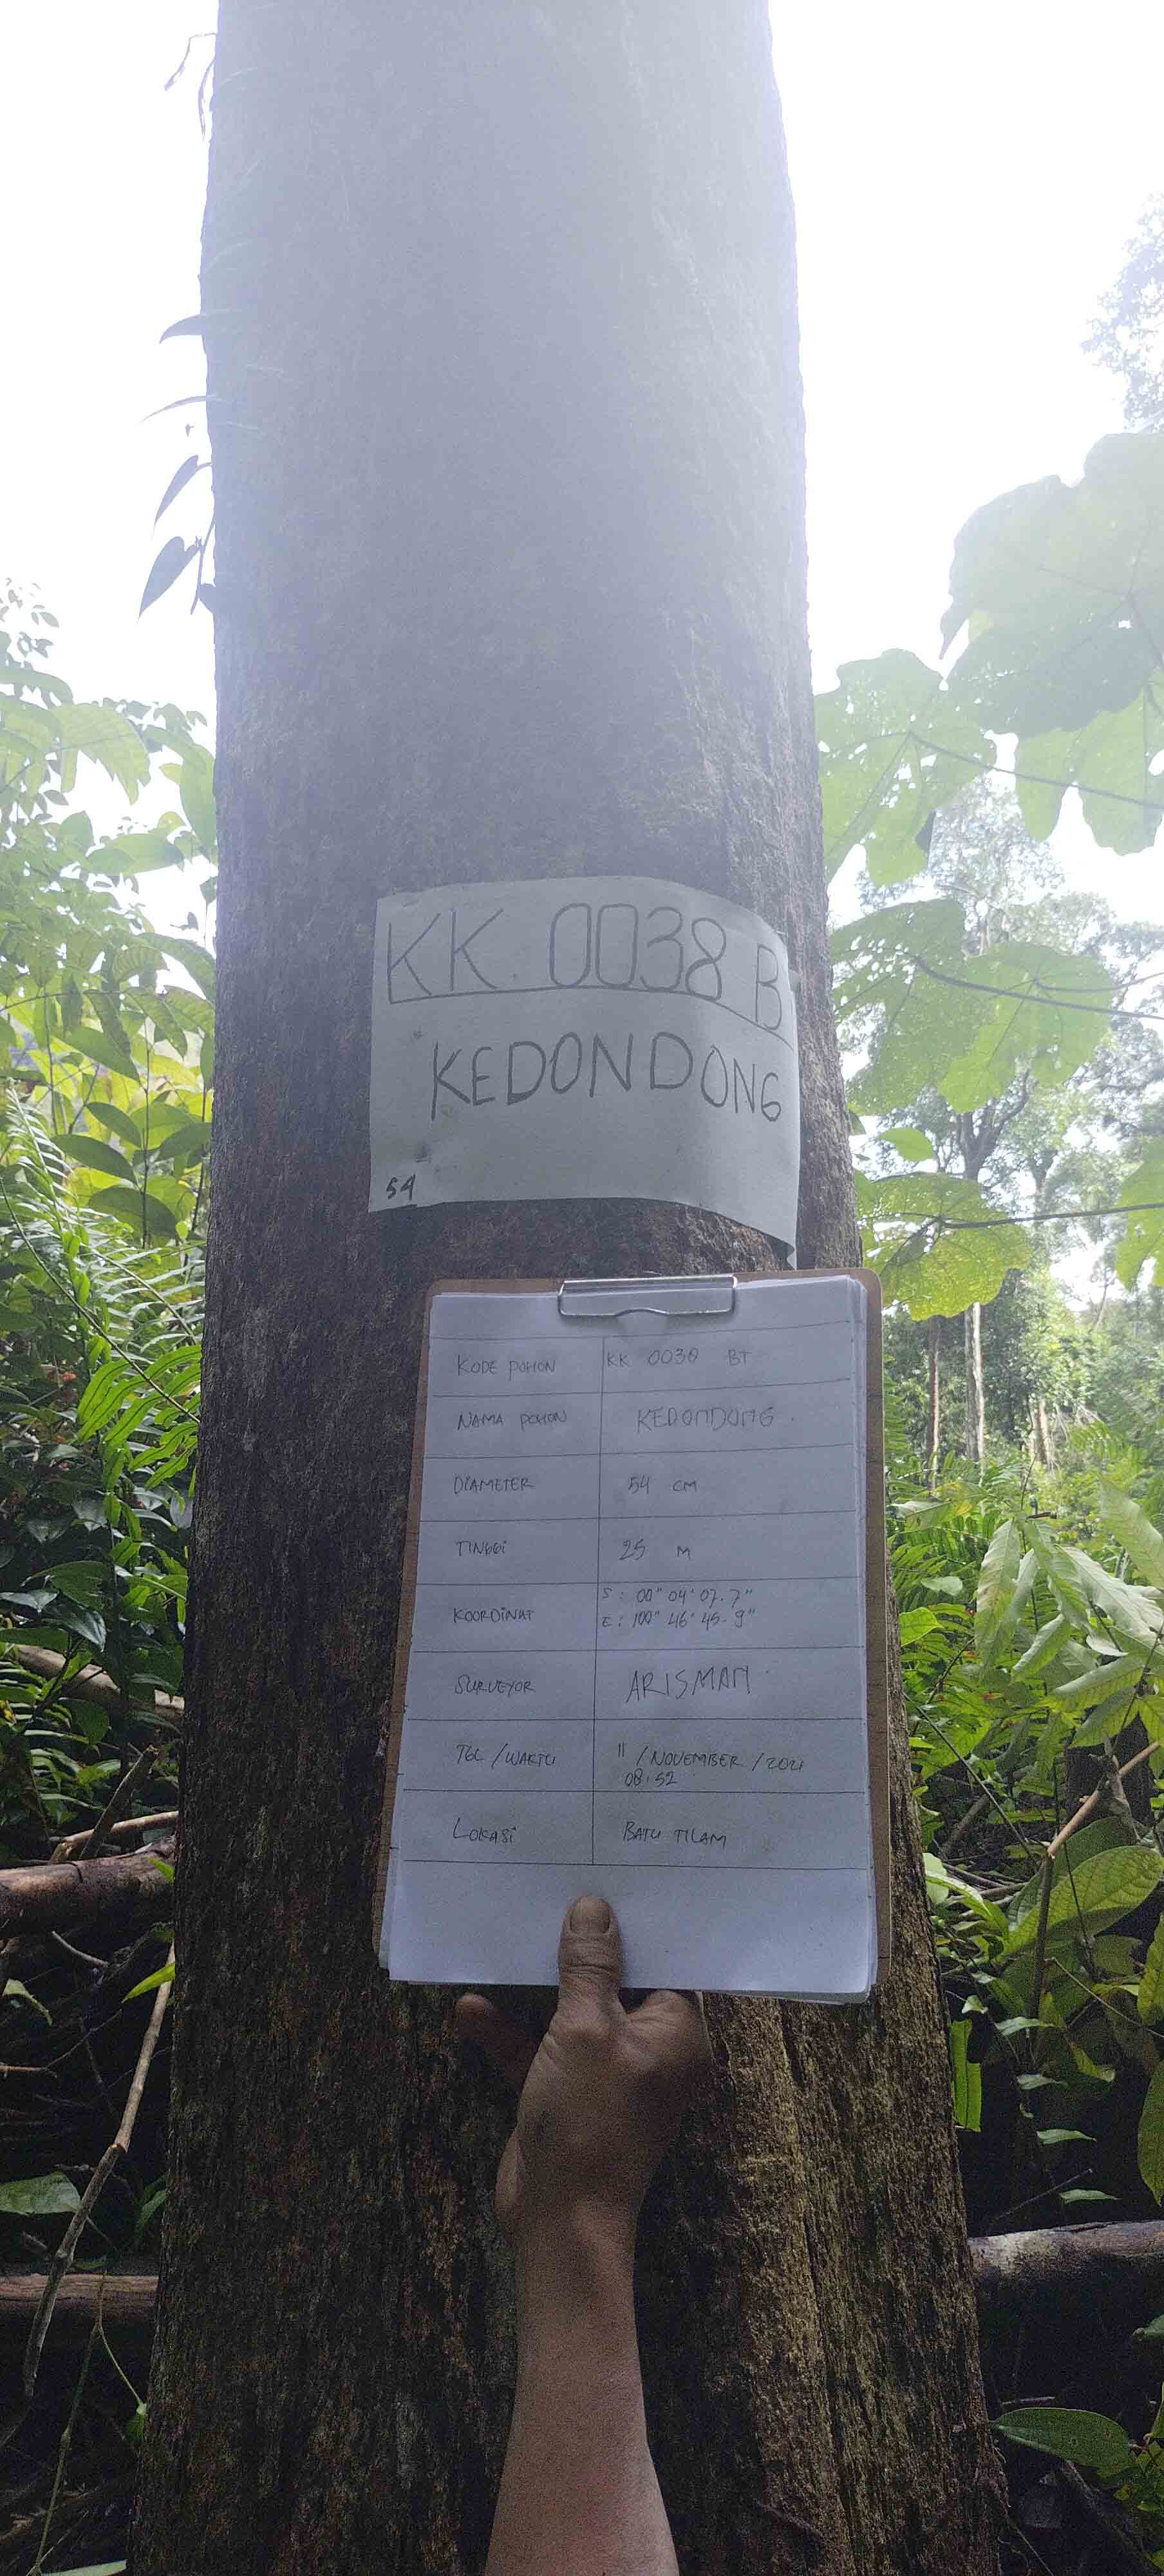 KK 0038 B
KEDONDONG
54
KODE POHON KK 0038 BT
NAMA POHON KEDONDONG
DIAMETER 54 CM
TINGGI 25 M
KOORDINAT S : 00° 04' 07.7"
E : 100° 46' 45.9"
SURVEYOR ARISMAN
TGL / WAKTU 11 / NOVEMBER / 2021
08:52
LOKASI BATU TILAM